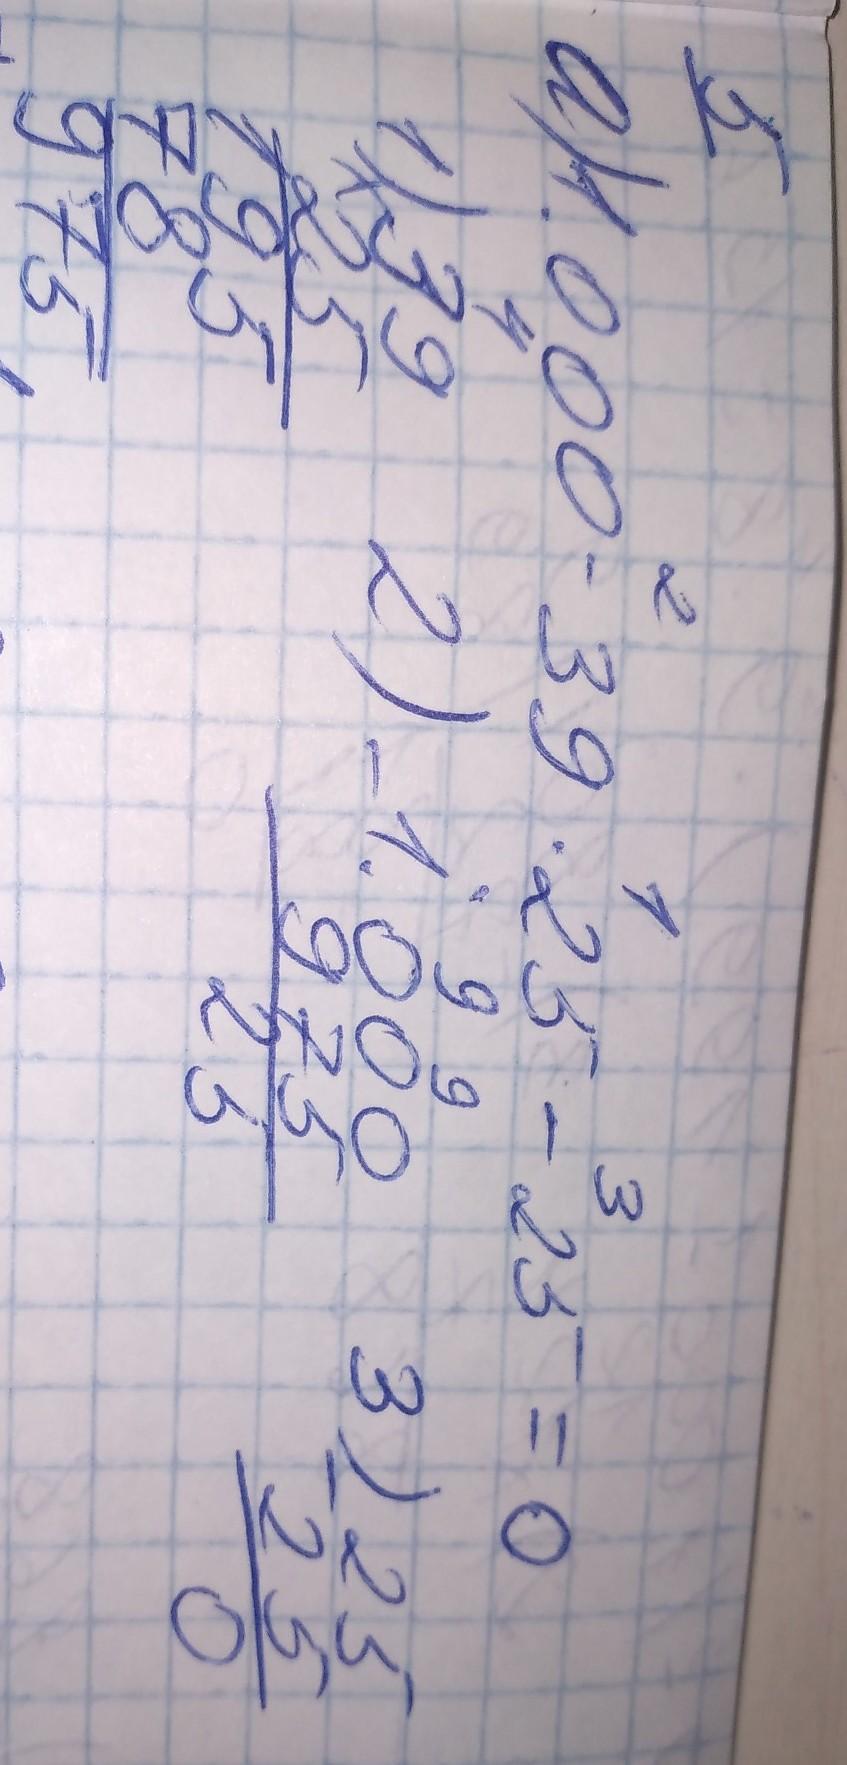 5
2 1 3
а) 1.000 - 39 · 25 - 25 = 0
4
1) 39 2) - 1.000 3) - 25
× 25 975 25
195 25 0
78
975